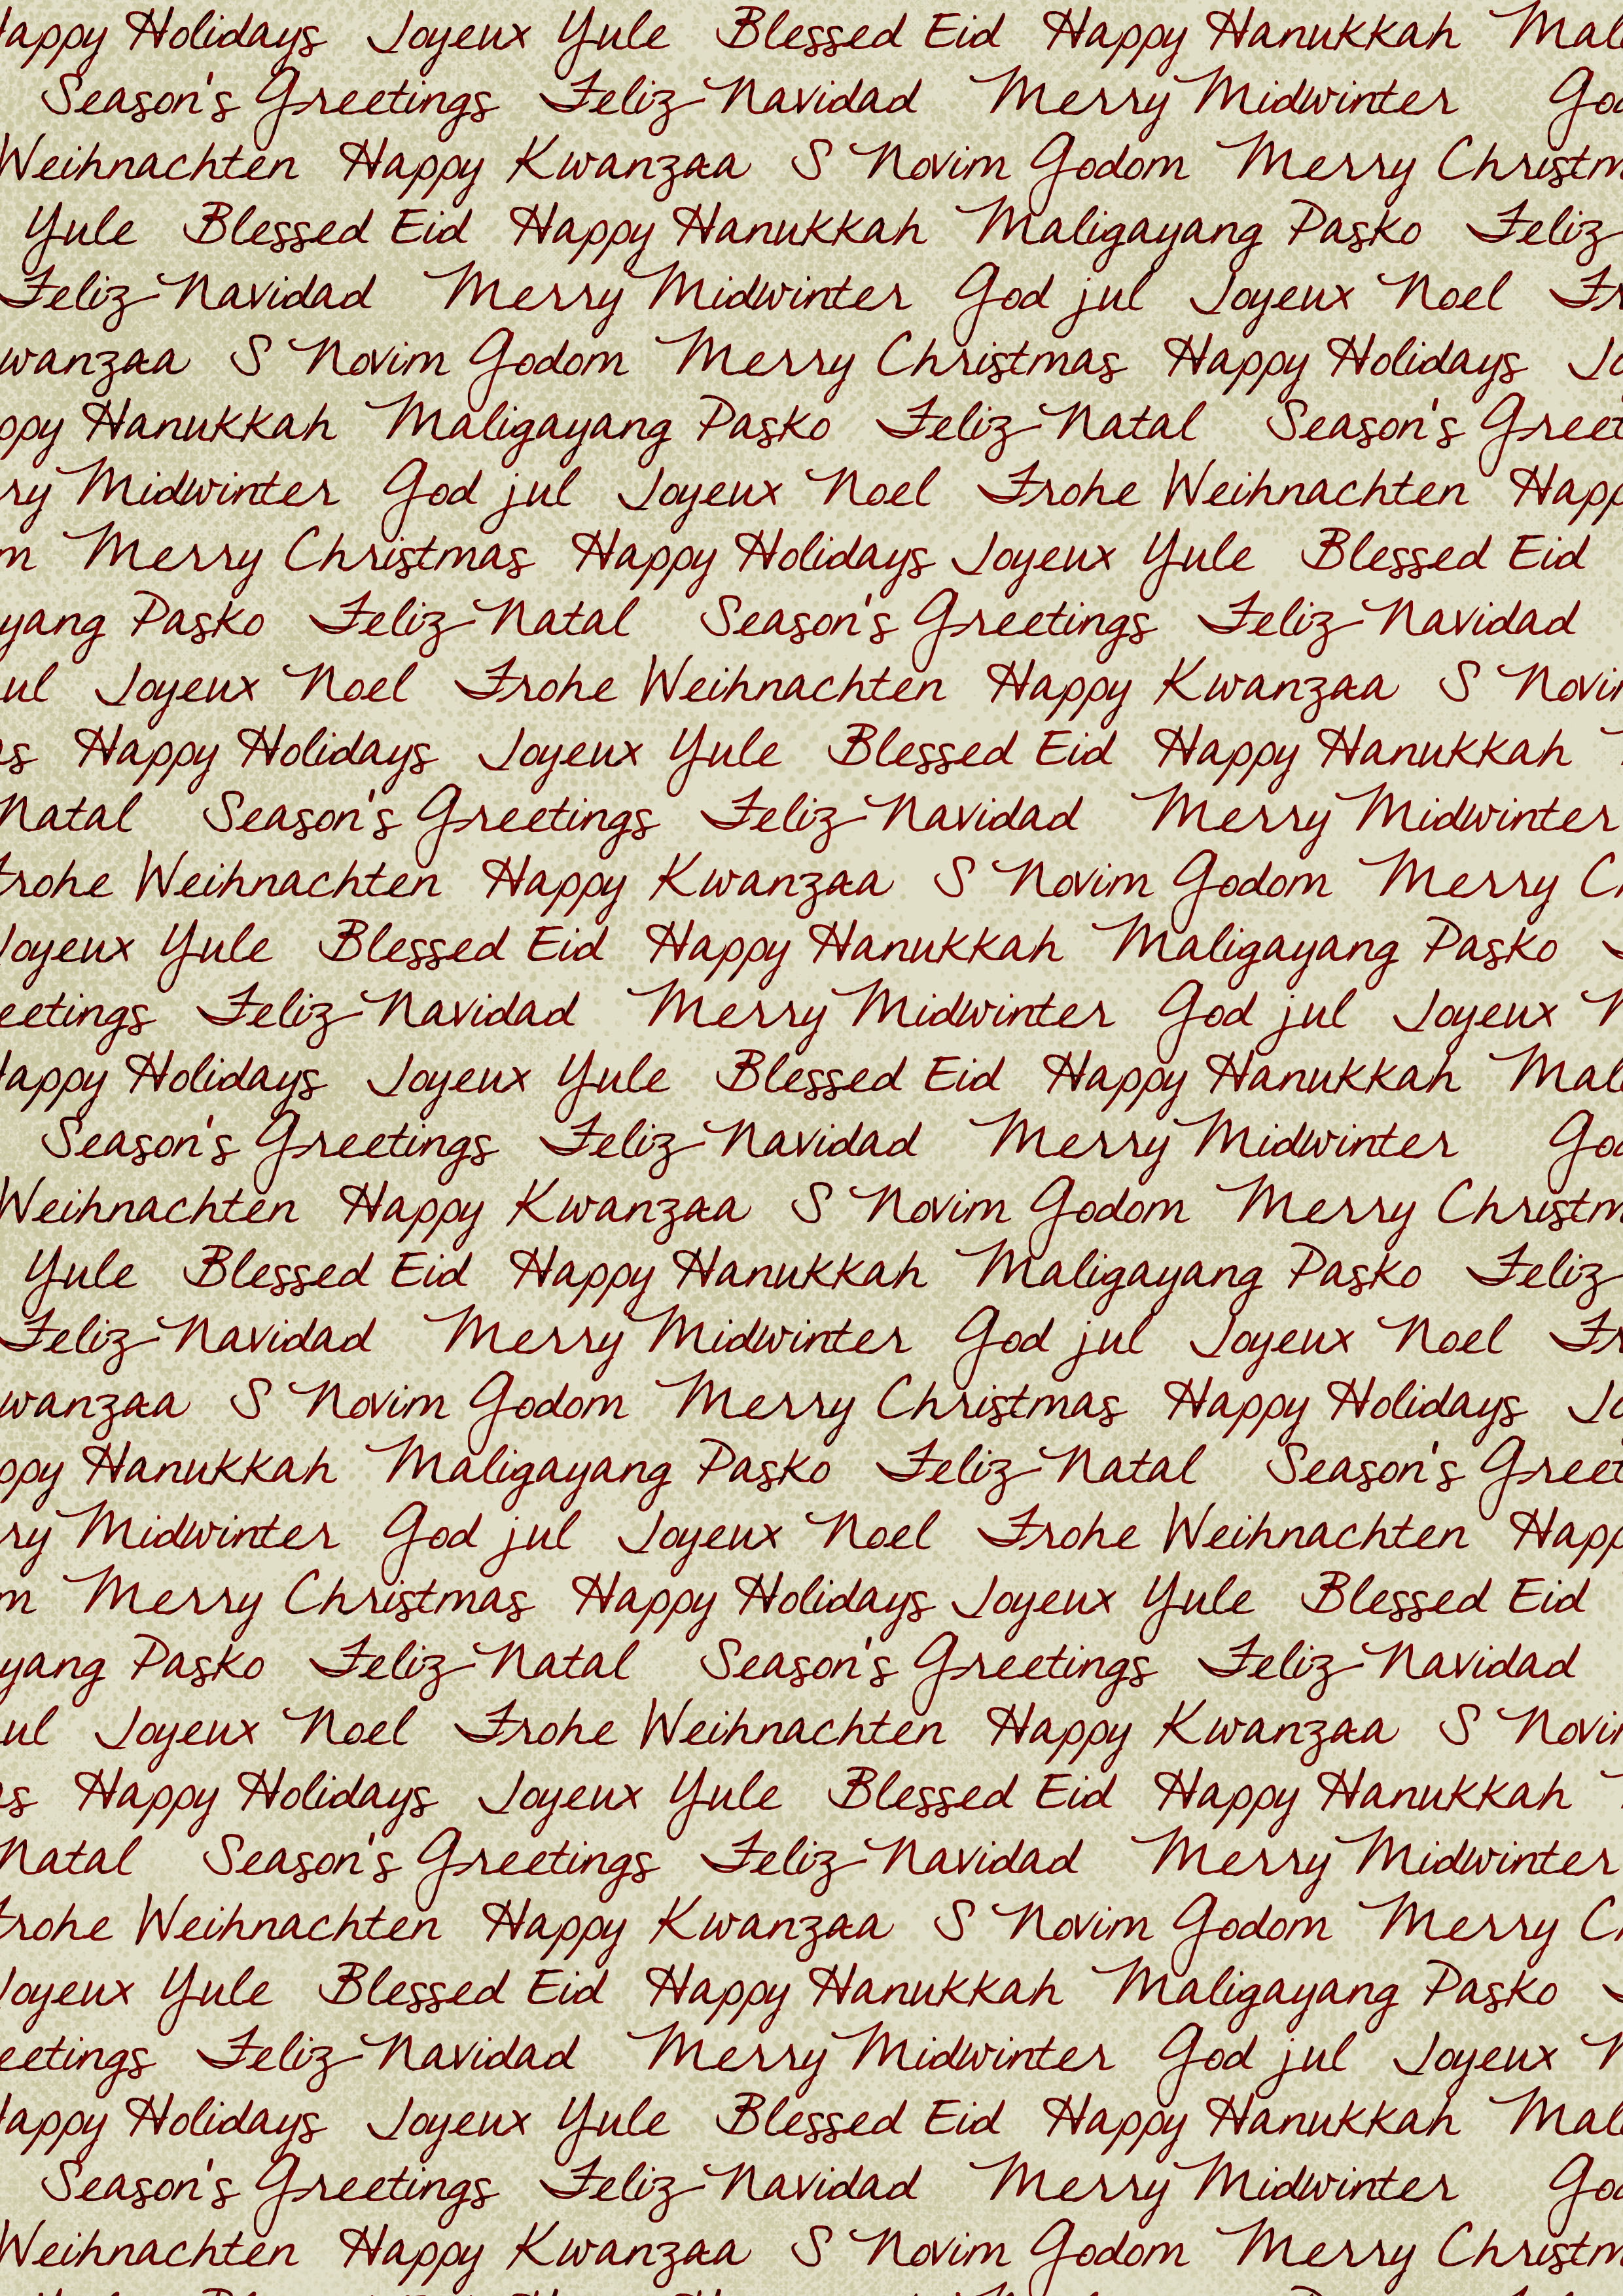 Happy Holidays Joyeux Yule Blessed Eid Happy Hanukkah Mal
Season's Greetings Feliz Navidad Merry Midwinter Go
Weihnachten Happy Kwanzaa S Novim Godom Merry Christm
Yule Blessed Eid Happy Hanukkah Maligayang Pasko Feliz
Feliz Navidad Merry Midwinter God jul Joyeux Noel Fr
wanzaa S Novim Godom Merry Christmas Happy Holidays Jo
ppy Hanukkah Maligayang Pasko Feliz Natal Season's Greet
ry Midwinter God jul Joyeux Noel Frohe Weihnachten Happ
m Merry Christmas Happy Holidays Joyeux Yule Blessed Eid
yang Pasko Feliz Natal Season's Greetings Feliz Navidad
ul Joyeux Noel Frohe Weihnachten Happy Kwanzaa S Novim
as Happy Holidays Joyeux Yule Blessed Eid Happy Hanukkah
Natal Season's Greetings Feliz Navidad Merry Midwinter
Frohe Weihnachten Happy Kwanzaa S Novim Godom Merry Ch
Joyeux Yule Blessed Eid Happy Hanukkah Maligayang Pasko
eetings Feliz Navidad Merry Midwinter God jul Joyeux N
Happy Holidays Joyeux Yule Blessed Eid Happy Hanukkah Mal
Season's Greetings Feliz Navidad Merry Midwinter Go
Weihnachten Happy Kwanzaa S Novim Godom Merry Christm
Yule Blessed Eid Happy Hanukkah Maligayang Pasko Feliz
Feliz Navidad Merry Midwinter God jul Joyeux Noel Fr
wanzaa S Novim Godom Merry Christmas Happy Holidays Jo
ppy Hanukkah Maligayang Pasko Feliz Natal Season's Greet
ry Midwinter God jul Joyeux Noel Frohe Weihnachten Happ
m Merry Christmas Happy Holidays Joyeux Yule Blessed Eid
yang Pasko Feliz Natal Season's Greetings Feliz Navidad
ul Joyeux Noel Frohe Weihnachten Happy Kwanzaa S Novim
as Happy Holidays Joyeux Yule Blessed Eid Happy Hanukkah
Natal Season's Greetings Feliz Navidad Merry Midwinter
Frohe Weihnachten Happy Kwanzaa S Novim Godom Merry Ch
Joyeux Yule Blessed Eid Happy Hanukkah Maligayang Pasko
eetings Feliz Navidad Merry Midwinter God jul Joyeux N
Happy Holidays Joyeux Yule Blessed Eid Happy Hanukkah Mal
Season's Greetings Feliz Navidad Merry Midwinter Go
Weihnachten Happy Kwanzaa S Novim Godom Merry Christm